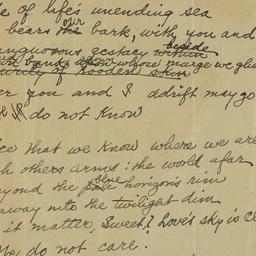 e of life's unending sea
our
bears the bark, with you and
languorous ecstacy within
beside
banks whose marge we gli
purity of wooded
er you and I adrift may go
do not Know
ce that we know where we are
h others arms: the world afar
blue
eyond the pale horizon's rim
away into the twilight dim
it matter, Sweet? Love's sky is cl
We do not care.